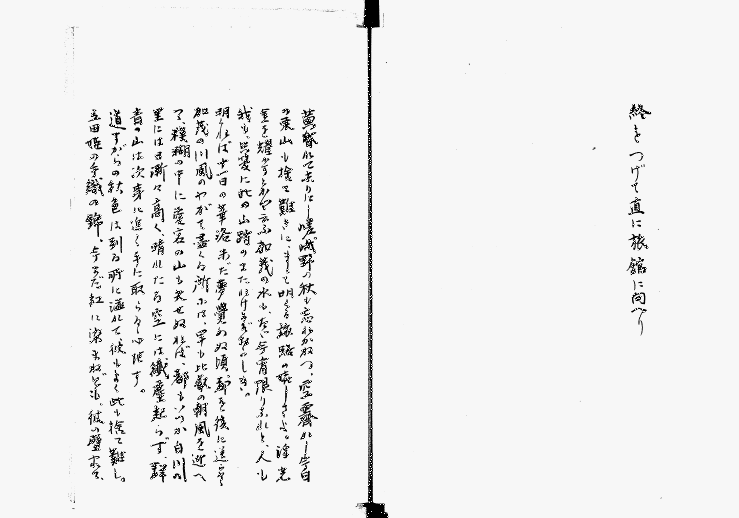 終をつげて直に旅館に向へり
黄昏れて来りし嵯峨野の秋も忘れかねつ、空霽れし今日
の東山も捨て難きに、まして明くる旅路の嬉しさよ。淫光
金を耀かすと云ふ加茂の水も、ただ今宵限りなれど、人も
我も、只管に此の山踏の
明くれば十一日の華洛未だ夢覺めぬ頃、都を後に
加茂の川風のやがて盡くる所には、早も比叡の朝風を迎へ
て、模糊の中に愛宕の山も失せぬれば、都もいつか白川の
里には日漸々高く、晴れたる空には纖塵起らず、群
青の山は次第に近く手に取らる心地す。
道すがらの秋色は到る所に溢れて彼もよく此も捨て難し。
立田姫の手織の錦、今まだ紅に染まねども、彼の